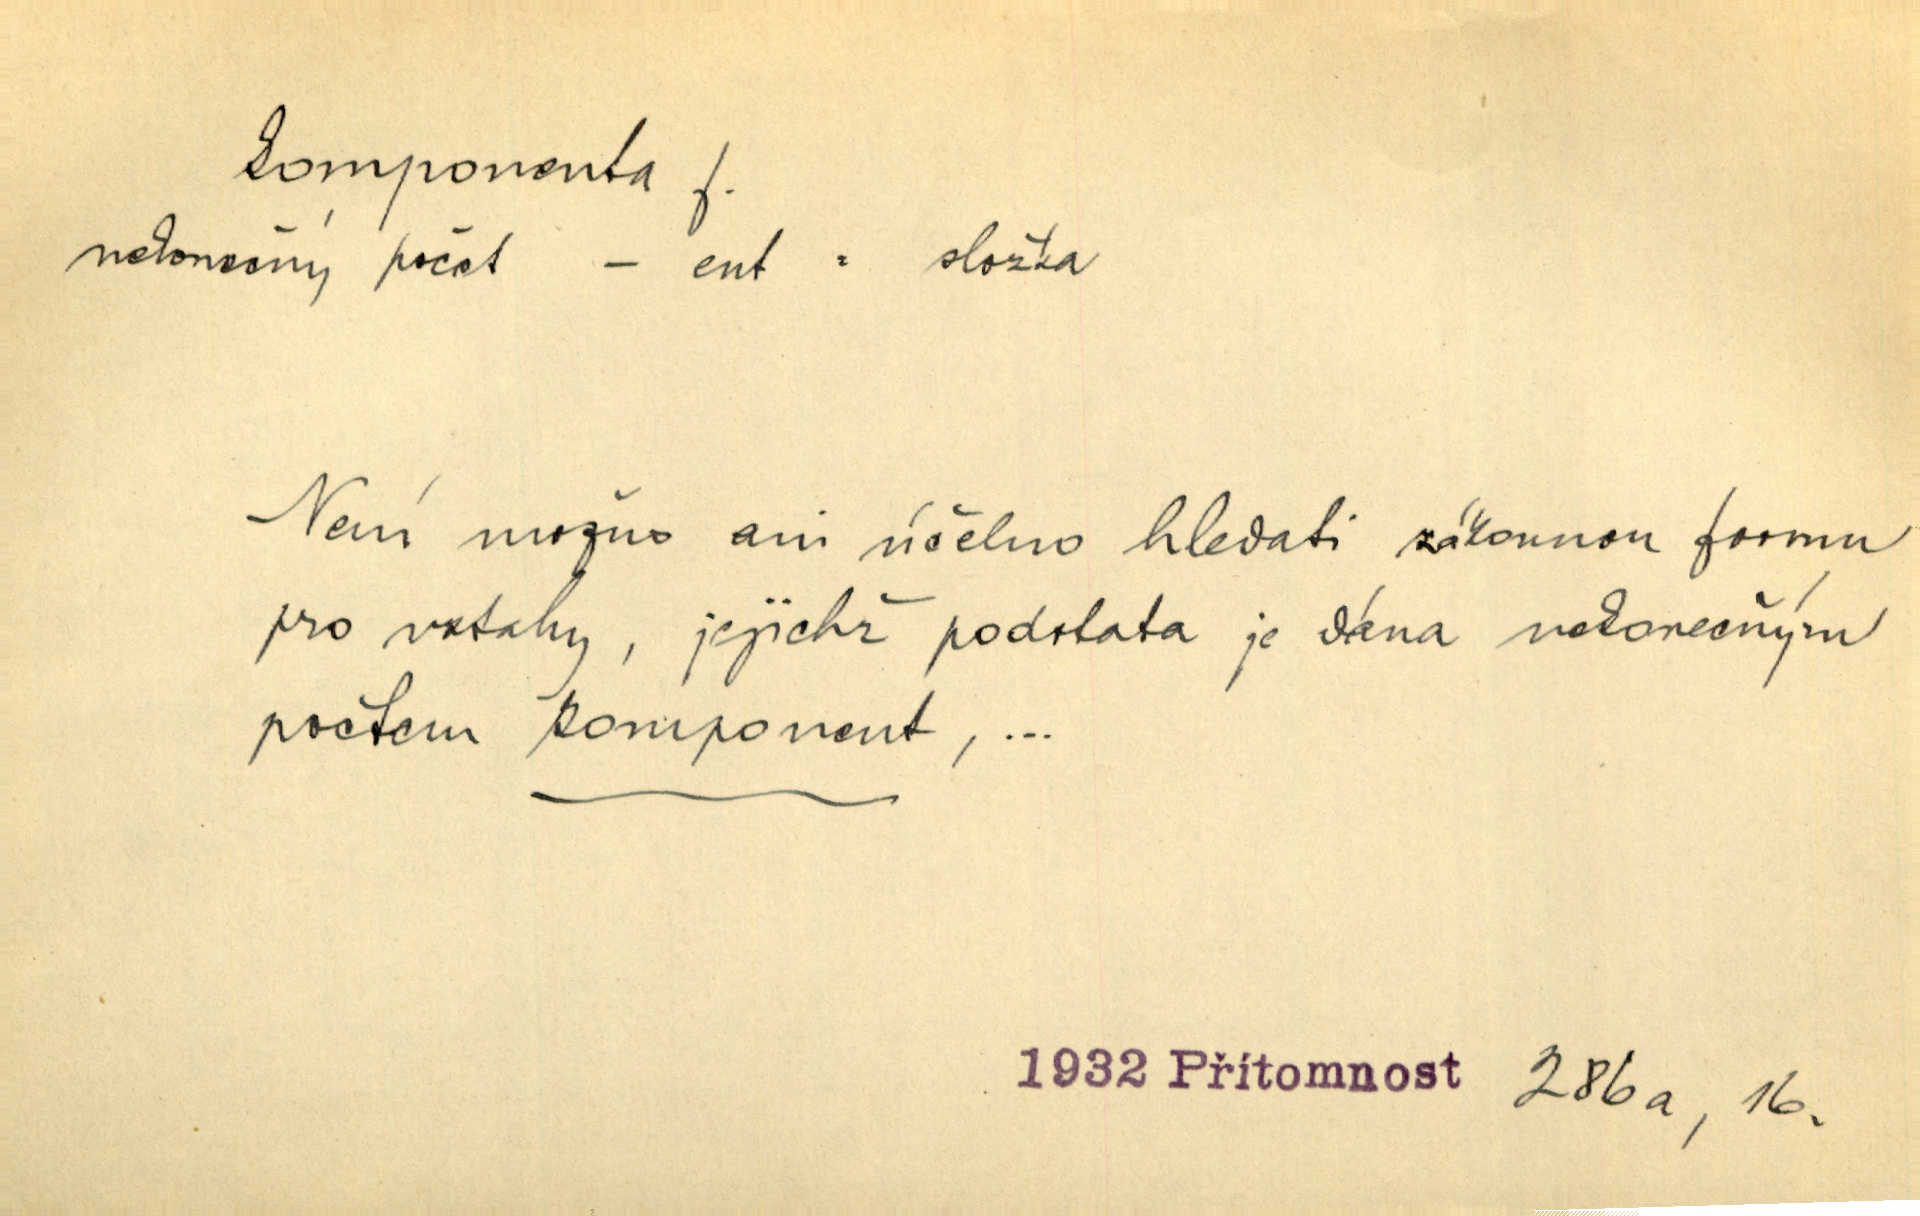 komponenta f.
nekonečný počet – ent = složka
Není možno ani účelno hledati zákonnou formu
pro vztahy, jejichž podstata je dána nekonečným
počtem komponent, ...
1932 Přítomnost 286a, 16.